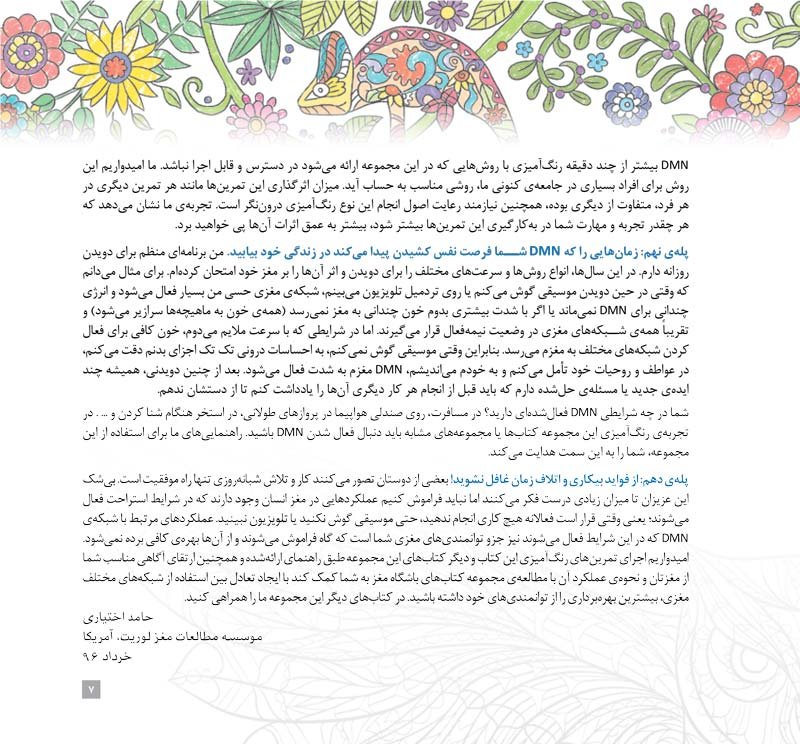 DMN بیشتر از چند دقیقه رنگ‌آمیزی با روش‌هایی که در این مجموعه ارائه می‌شود در دسترس و قابل اجرا نباشد. ما امیدواریم این
روش برای افراد بسیاری در جامعه‌ی کنونی ما، روشی مناسب به حساب آید. میزان اثرگذاری این تمرین‌ها مانند هر تمرین دیگری در
هر فرد، متفاوت از دیگری بوده، همچنین نیازمند رعایت اصول انجام این نوع رنگ‌آمیزی درون‌نگر است. تجربه‌ی ما نشان می‌دهد که
هر چقدر تجربه و مهارت شما در به‌کارگیری این تمرین‌ها بیشتر شود، بیشتر به عمق اثرات آن‌ها پی خواهید برد.
پله‌ی نهم: زمان‌هایی را که DMN شما فرصت نفس کشیدن پیدا می‌کند در زندگی خود بیابید. من برنامه‌ای منظم برای دویدن
روزانه دارم. در این سال‌ها، انواع روش‌ها و سرعت‌های مختلف را برای دویدن و اثر آن‌ها را بر مغز خود امتحان کرده‌ام. برای مثال می‌دانم
که وقتی در حین دویدن موسیقی گوش می‌کنم یا روی تردمیل تلویزیون می‌بینم، شبکه‌ی مغزی حسی من بسیار فعال می‌شود و انرژی
چندانی برای DMN نمی‌ماند یا اگر با شدت بیشتری بدوم خون چندانی به مغز نمی‌رسد (همه‌ی خون به ماهیچه‌ها سرازیر می‌شود) و
تقریباً همه‌ی شبکه‌های مغزی در وضعیت نیمه‌فعال قرار می‌گیرند. اما در شرایطی که با سرعت ملایم می‌دوم، خون کافی برای فعال
کردن شبکه‌های مختلف به مغزم می‌رسد. بنابراین وقتی موسیقی گوش نمی‌کنم، به احساسات درونی تک تک اجزای بدنم دقت می‌کنم،
در عواطف و روحیات خود تأمل می‌کنم و به خودم می‌اندیشم، DMN مغزم به شدت فعال می‌شود. بعد از چنین دویدنی، همیشه چند
ایده‌ی جدید یا مسئله‌ی حل‌شده دارم که باید قبل از انجام هر کار دیگری آن‌ها را یادداشت کنم تا از دستشان ندهم.
شما در چه شرایطی DMN فعال‌شده‌ای دارید؟ در مسافرت، روی صندلی هواپیما در پروازهای طولانی، در استخر هنگام شنا کردن و ... . در
تجربه‌ی رنگ‌آمیزی این مجموعه کتاب‌ها یا مجموعه‌های مشابه باید دنبال فعال شدن DMN باشید. راهنمایی‌های ما برای استفاده از این
مجموعه، شما را به این سمت هدایت می‌کند.
پله‌ی دهم: از فواید بیکاری و اتلاف زمان غافل نشوید! بعضی از دوستان تصور می‌کنند کار و تلاش شبانه‌روزی تنها راه موفقیت است. بی‌شک
این عزیزان تا میزان زیادی درست فکر می‌کنند اما نباید فراموش کنیم عملکردهایی در مغز انسان وجود دارند که در شرایط استراحت فعال
می‌شوند؛ یعنی وقتی قرار است فعالانه هیچ کاری انجام ندهید، حتی موسیقی گوش نکنید یا تلویزیون نبینید. عملکردهای مرتبط با شبکه‌ی
DMN که در این شرایط فعال می‌شوند نیز جزو توانمندی‌های مغزی شما است که گاه فراموش می‌شوند و از آن‌ها بهره‌ی کافی برده نمی‌شود.
امیدواریم اجرای تمرین‌های رنگ‌آمیزی این کتاب و دیگر کتاب‌های این مجموعه طبق راهنمای ارائه‌شده و همچنین ارتقای آگاهی مناسب شما
از مغزتان و نحوه‌ی عملکرد آن با مطالعه‌ی مجموعه کتاب‌های باشگاه مغز به شما کمک کند با ایجاد تعادل بین استفاده از شبکه‌های مختلف
مغزی، بیشترین بهره‌برداری را از توانمندی‌های خود داشته باشید. در کتاب‌های دیگر این مجموعه ما را همراهی کنید.
حامد اختیاری
موسسه مطالعات مغز لوریت، آمریکا
خرداد ۹۶
۷